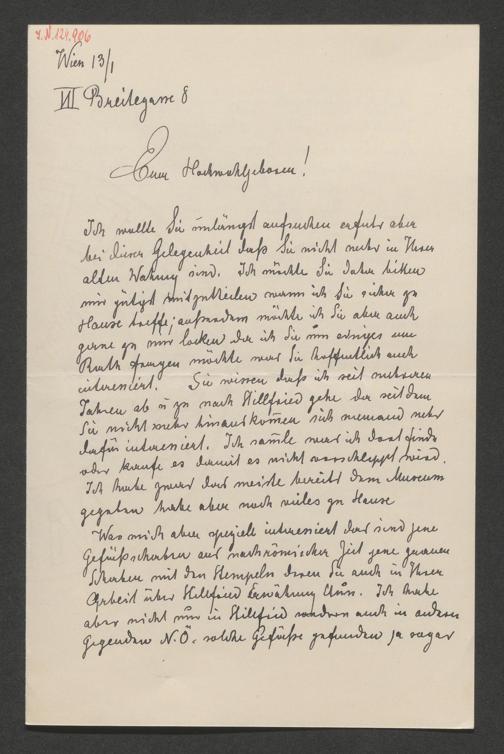 I.N.124.906
Wien 13/1
VII Breitegasse 8
Euer Hochwohlgeboren!
Ich wollte Sie unlängst aufsuchen erfuhr aber
bei dieser Gelegenheit daß Sie nicht mehr in Ihrer
alten Wohnung sind. Ich möchte Sie daher bitten
mir gütigst mitzutheilen wann ich Sie sicher zu
Hause treffe; außerdem möchte ich Sie aber auch
gerne zu mir locken da ich Sie um einiges um
Rath fragen möchte was Sie hoffentlich auch
interessiert. Sie wissen daß ich seit mehreren
Jahren ab u zu nach Hillfried gehe da seitdem
Sie nicht mehr hinauskom̄en sich niemand mehr
dafür interessiert. Ich sam̄le was ich dort finde
oder kaufe es damit es nicht verschleppt wird.
Ich habe zwar das meiste bereits dem Museum
gegeben habe aber noch vieles zu Hause
Was mich aber speziell interessiert das sind jene
Gefäßscherben aus nachrömischer Zeit jene grauen
Scherben mit den Stempeln deren Sie auch in Ihrer
Arbeit über Hillfried Erwähnung thun. Ich habe
aber nicht nur in Hillfried sondern auch in andern
Gegenden N.Ö. solche Gefäße gefunden ja sogar